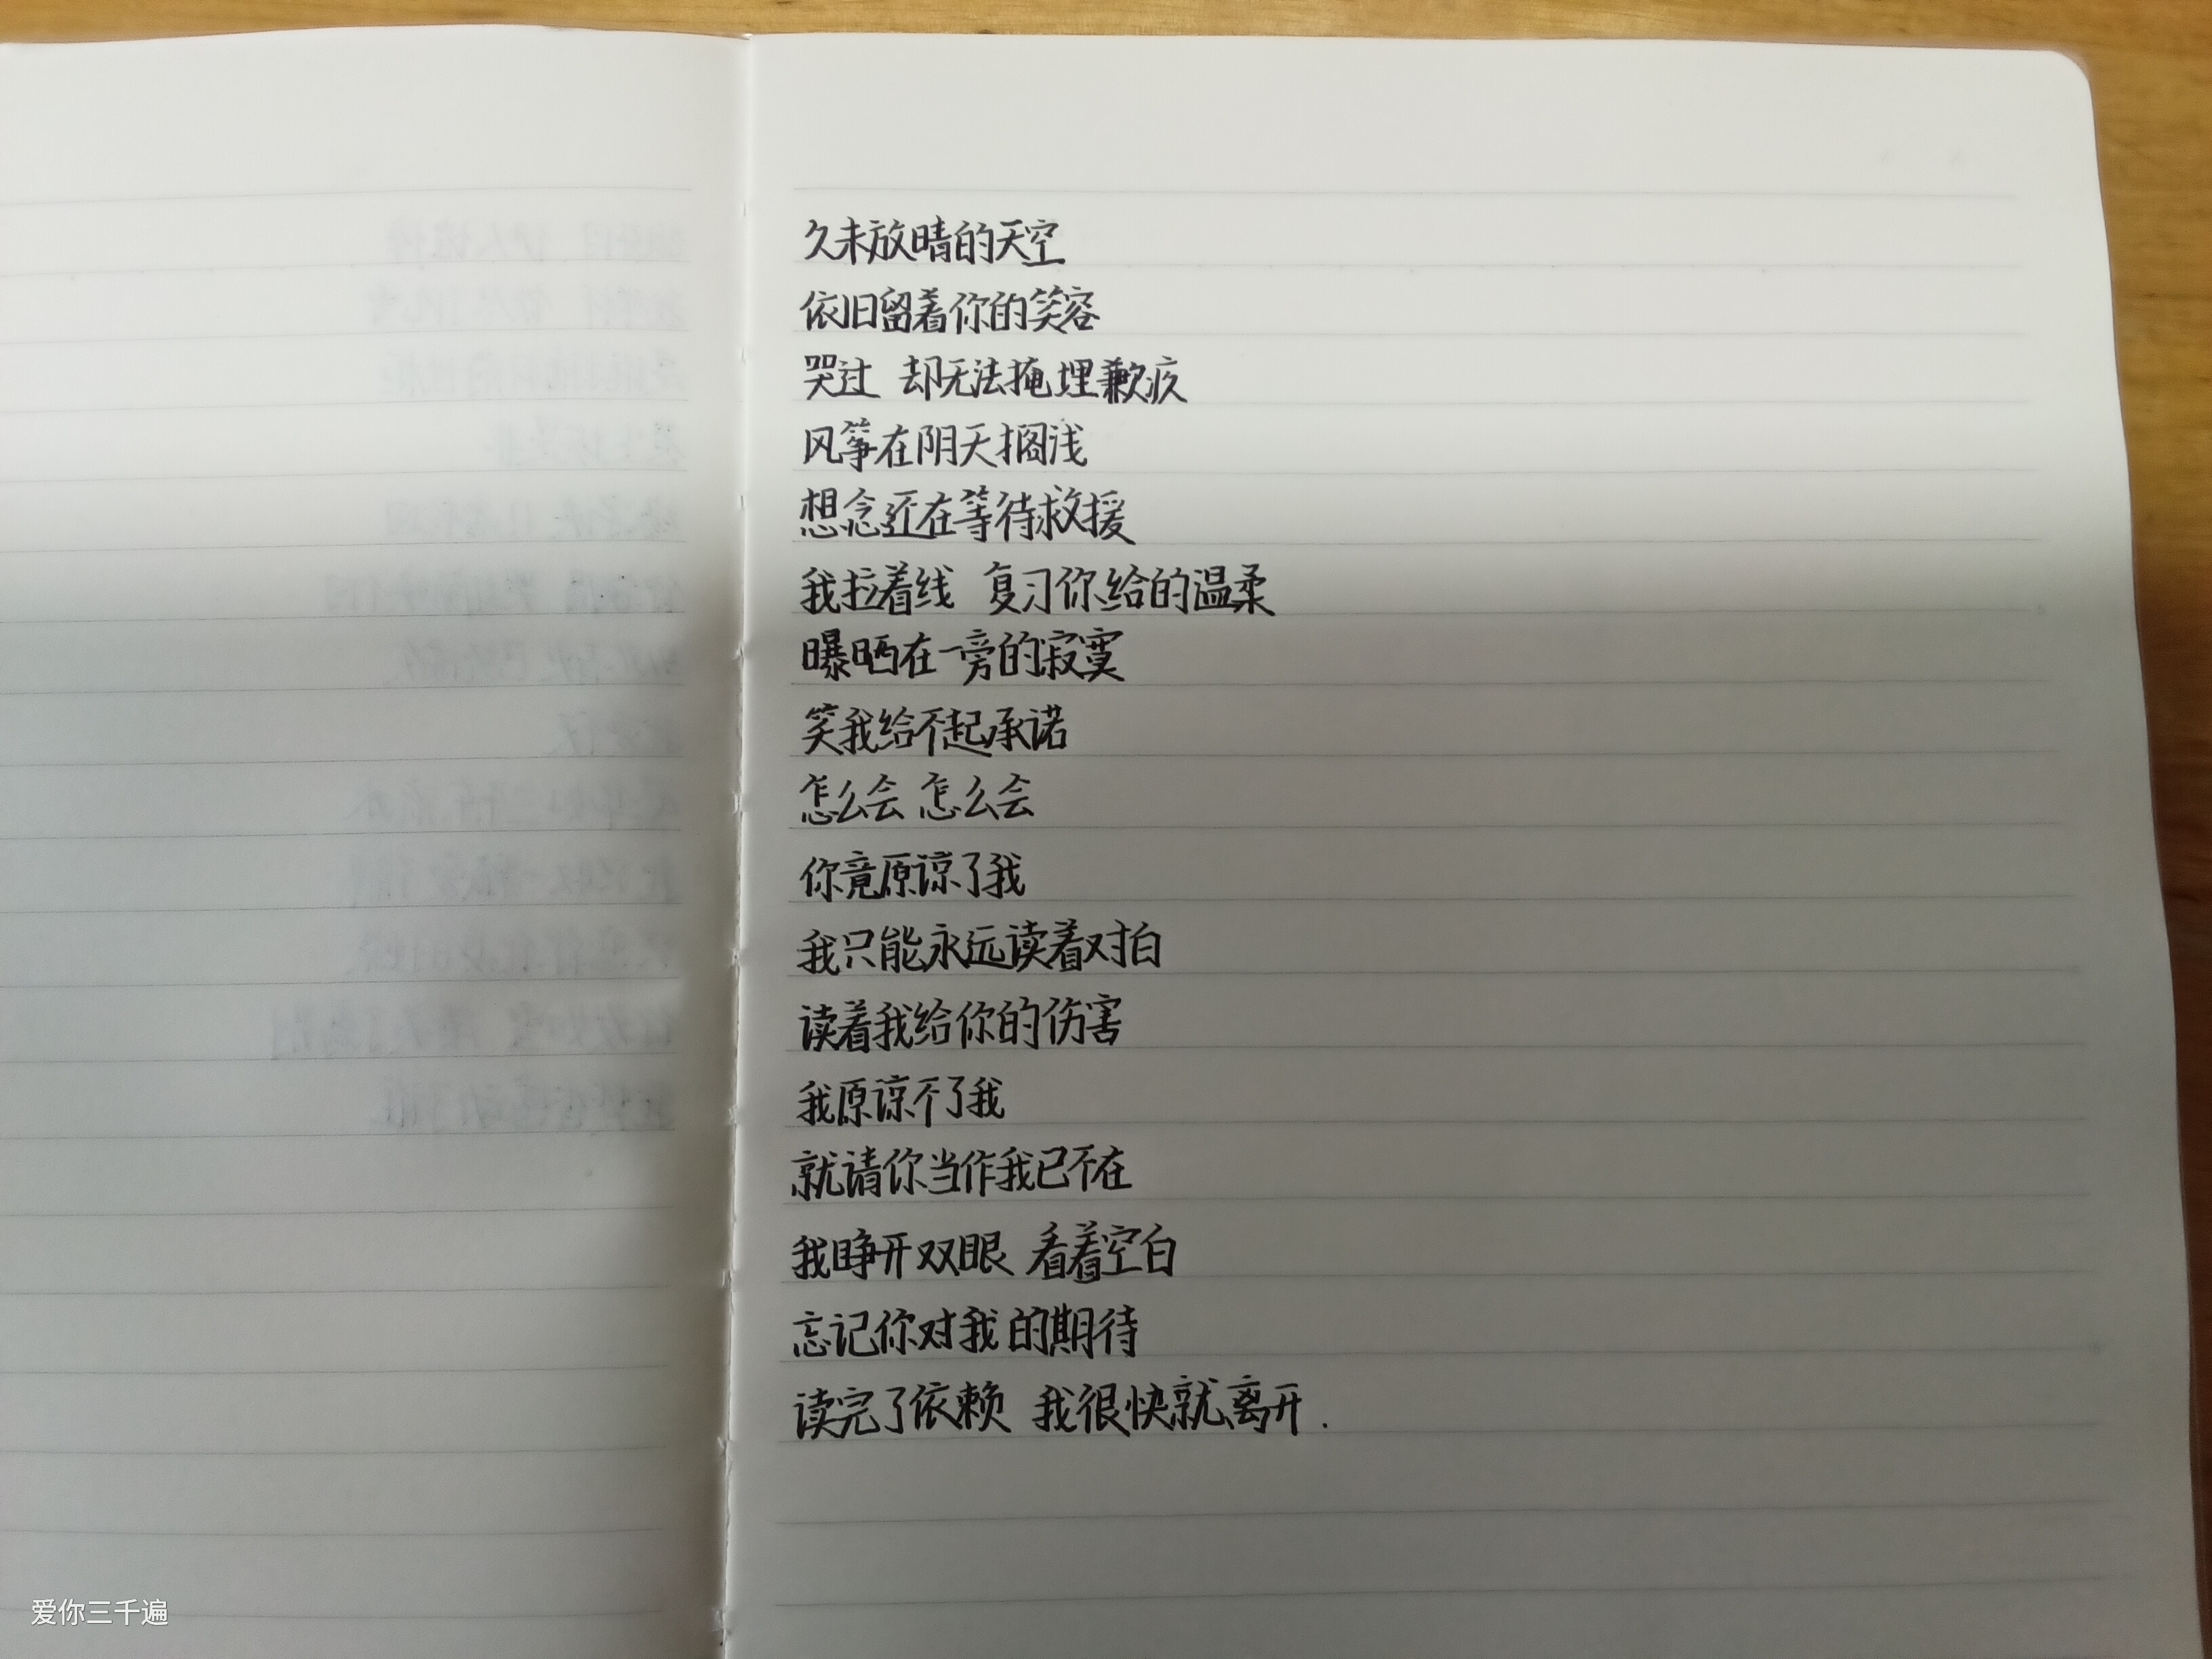 久未放晴的天空
依旧留着你的笑容
哭过 却无法掩埋歉疚
风筝在阴天搁浅
想念还在等待救援
我拉着线 复习你给的温柔
曝晒在一旁的寂寞
笑我给不起承诺
怎么会 怎么会
你竟原谅了我
我只能永远读着对白
读着我给你的伤害
我原谅不了我
就请你当作我已不在
我睁开双眼 看着空白
忘记你对我的期待
读完了依赖 我很快就离开.
爱你三千遍